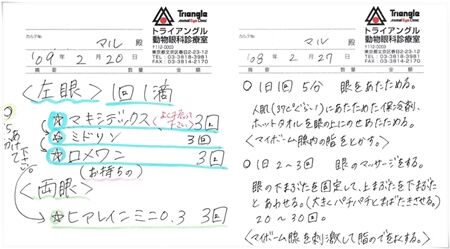 カルテNo.
マル
'09年 2月20日
摘要 数量 金額
Triangle
Animal Eye Clinic
トライアングル
動物眼科診療室
〒112-0003
東京都文京区春日2-23-12
TEL 03-3818-3981
FAX 03-3814-2170
<左眼> 1回1滴
☆マキシデックス(よくふって下さい) 3回
☆ミドリン 3回
☆ロメワン 3回
(お持ちの)
5分あけて下さい
<両眼>
☆ヒアレインミニ0.3 3回
カルテNo.
マル
'08年 2月27日
摘要 数量 金額
Triangle
Animal Eye Clinic
トライアングル
動物眼科診療室
〒112-0003
東京都文京区春日2-23-12
TEL 03-3818-3981
FAX 03-3814-2170
○1日1回 5分 眼をあたためる。
人肌(37℃ぐらい)にあたためた保冷剤、
ホットタオルを眼の上にのせあたためる。
<マイボーム腺内の脂をとかす。>
○1日2〜3回 眼のマッサージをする。
眼の下まぶたを固定して、上まぶたを下まぶた
とあわせる。(大きくパチパチとまばたきさせる)
20〜30回。
<マイボーム腺を刺激して脂のでをよくする。>